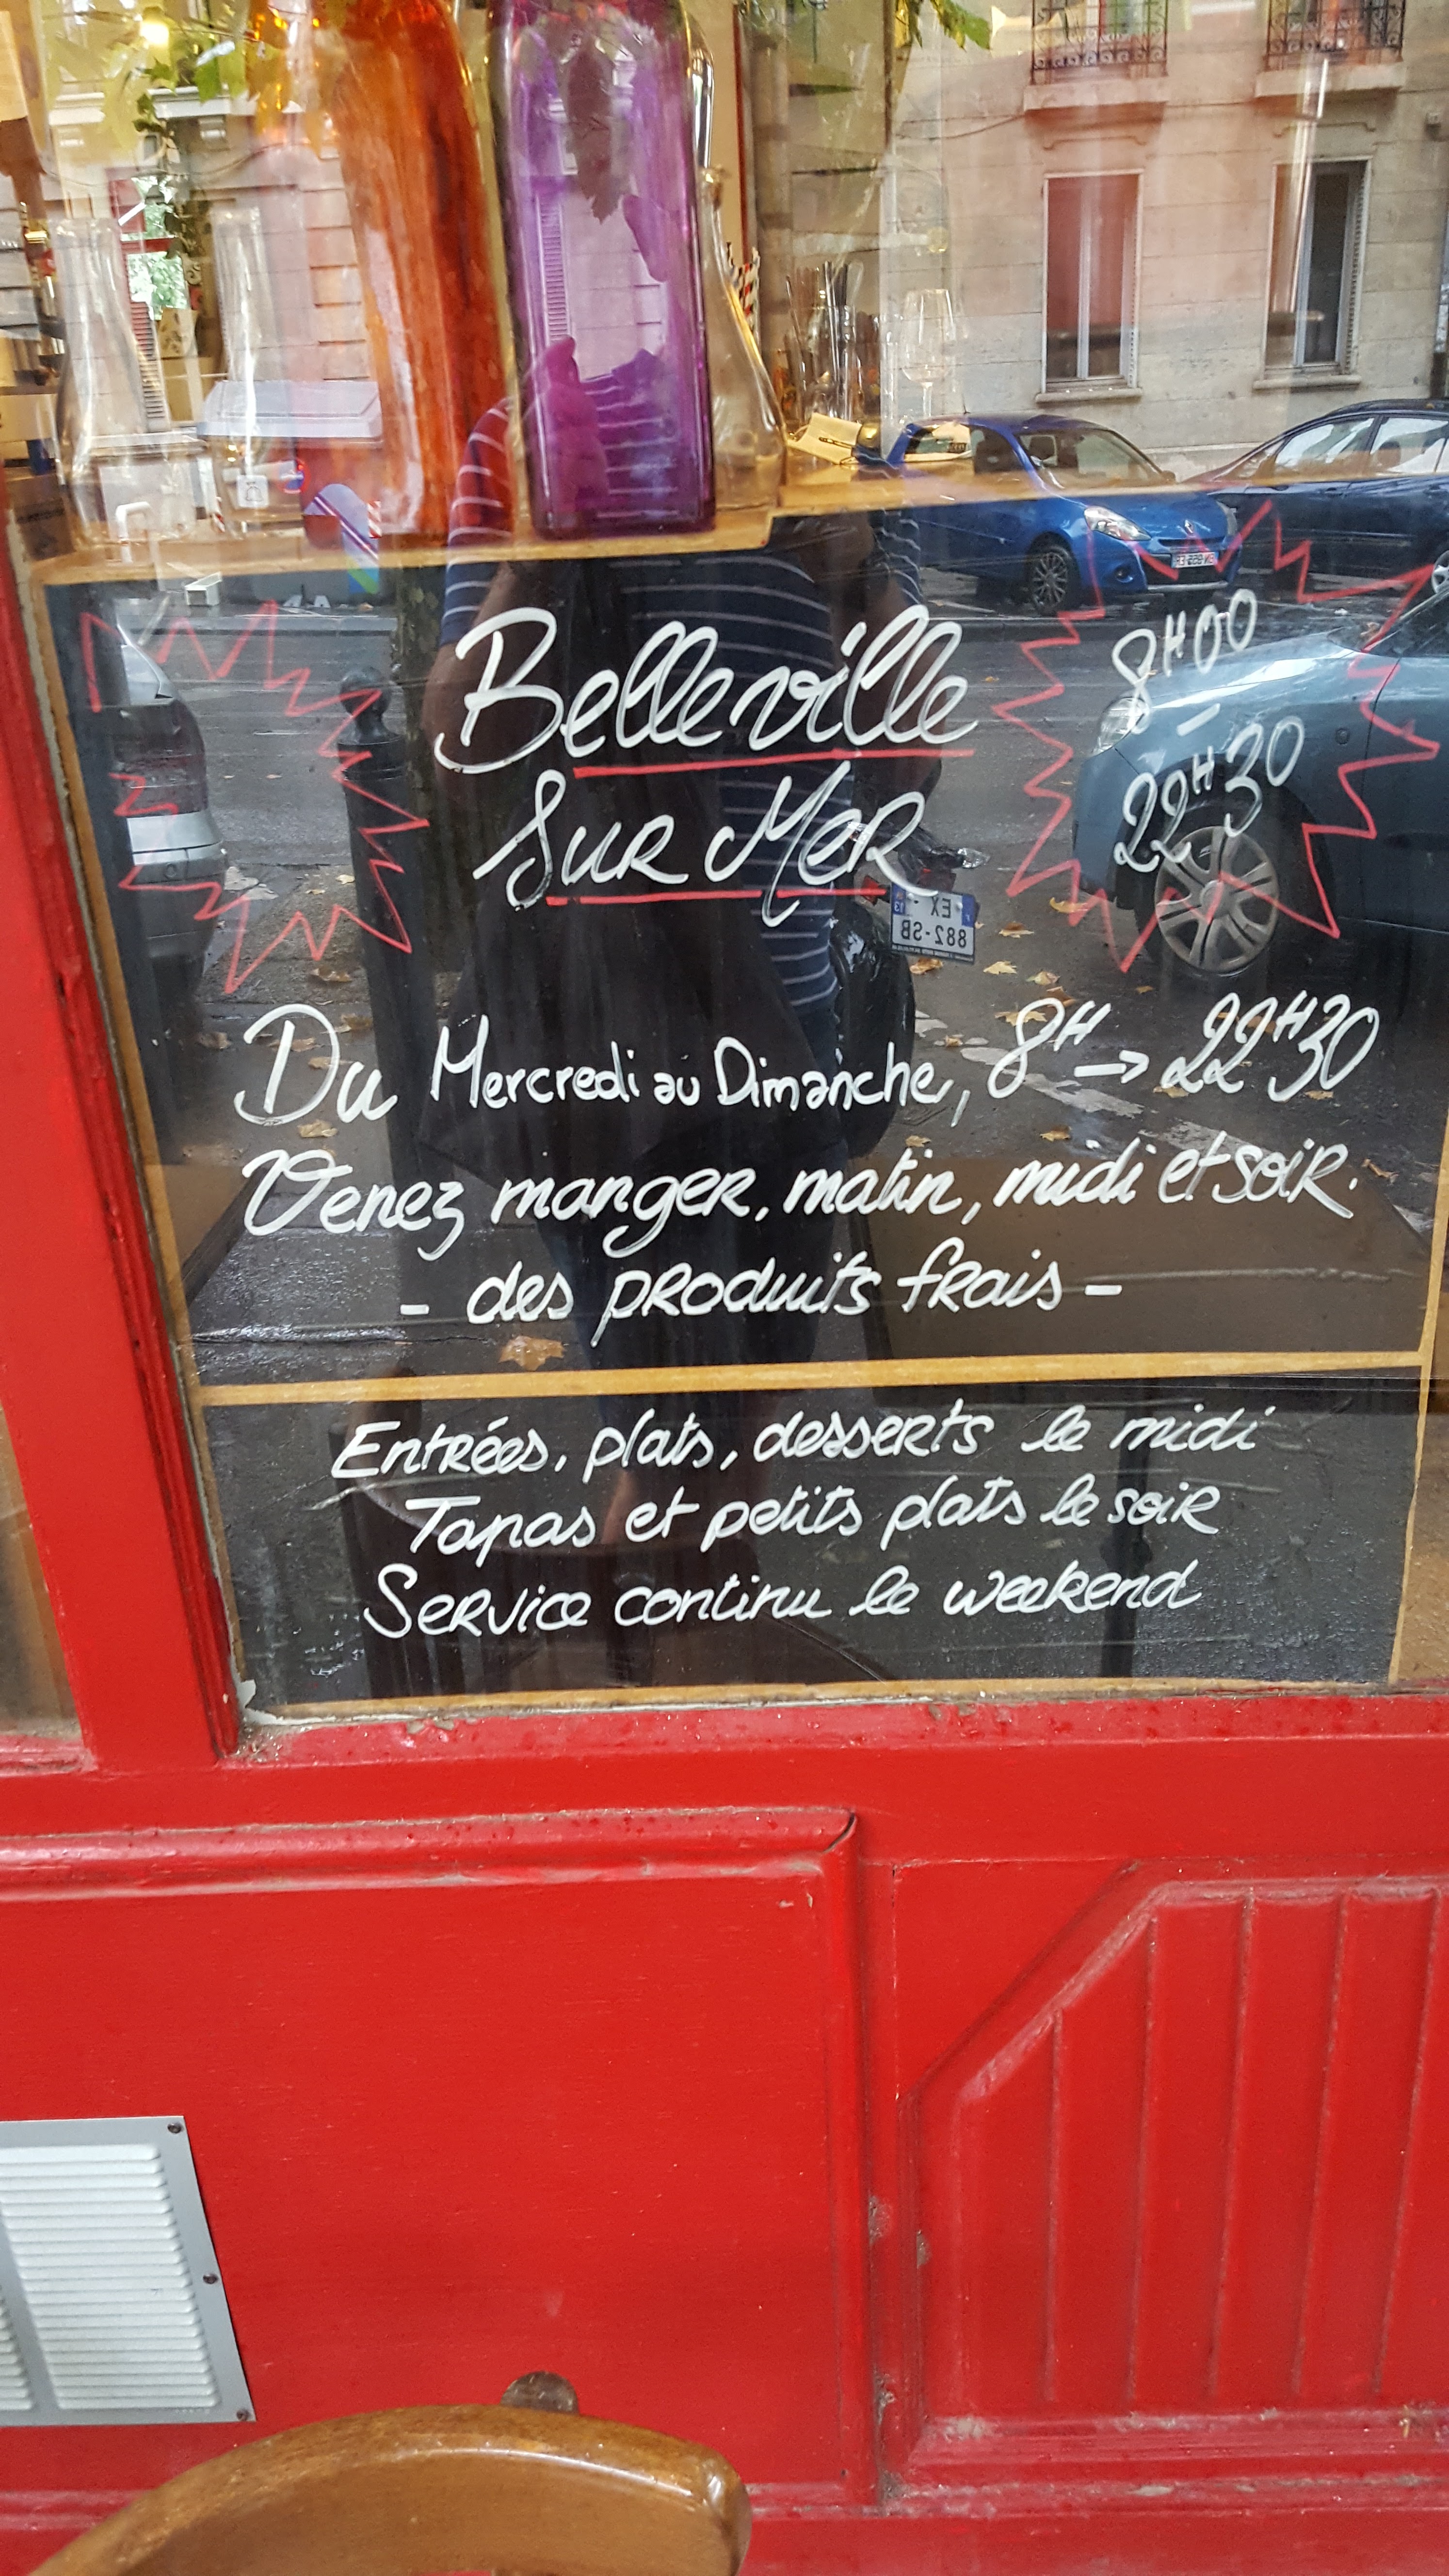 Belleville
Sur Mer
8H00
-
22H30
Du Mercredi au Dimanche, 8H → 22H30
Venez manger, matin, midi et soir.
- des produits frais -
Entrées, plats, desserts le midi
Tapas et petits plats le soir
Service continu le weekend
EX -
882-SB